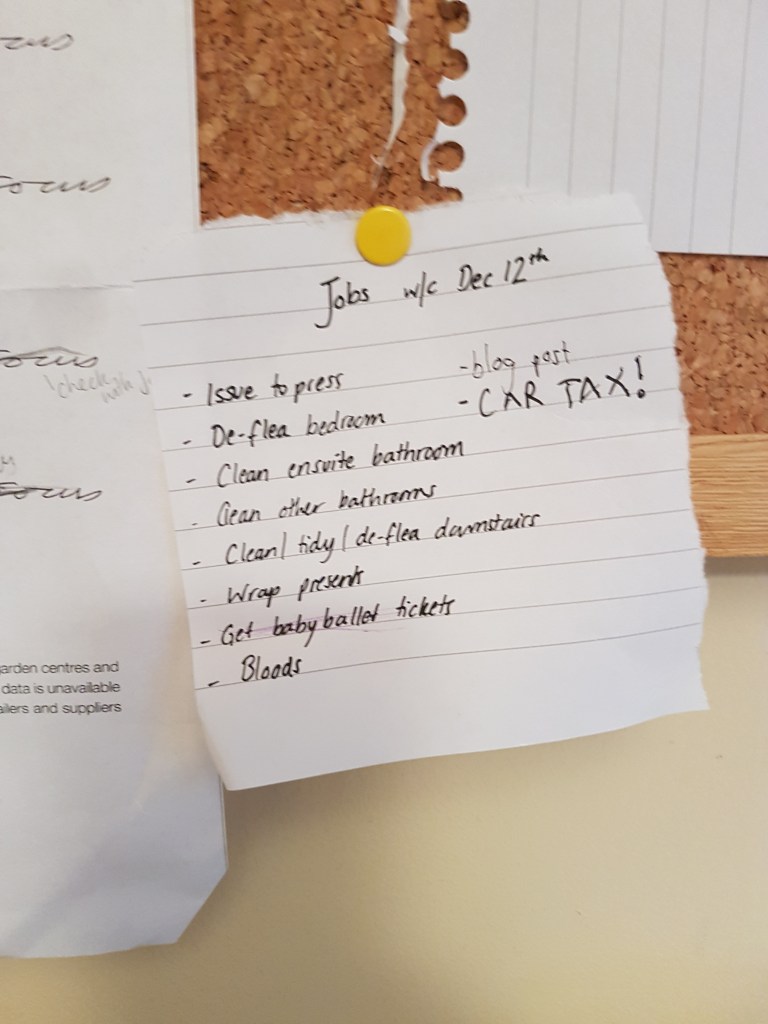 ocus
focus
focus
check with J
focus
arden centres and
data is unavailable
ailers and suppliers
Jobs w/c Dec 12th
- Issue to press
- De-flea bedroom
- Clean ensuite bathroom
- Clean other bathrooms
- Clean / tidy / de-flea downstairs
- Wrap presents
- Get babyballet tickets
- Bloods
- blog post
- CAR TAX!